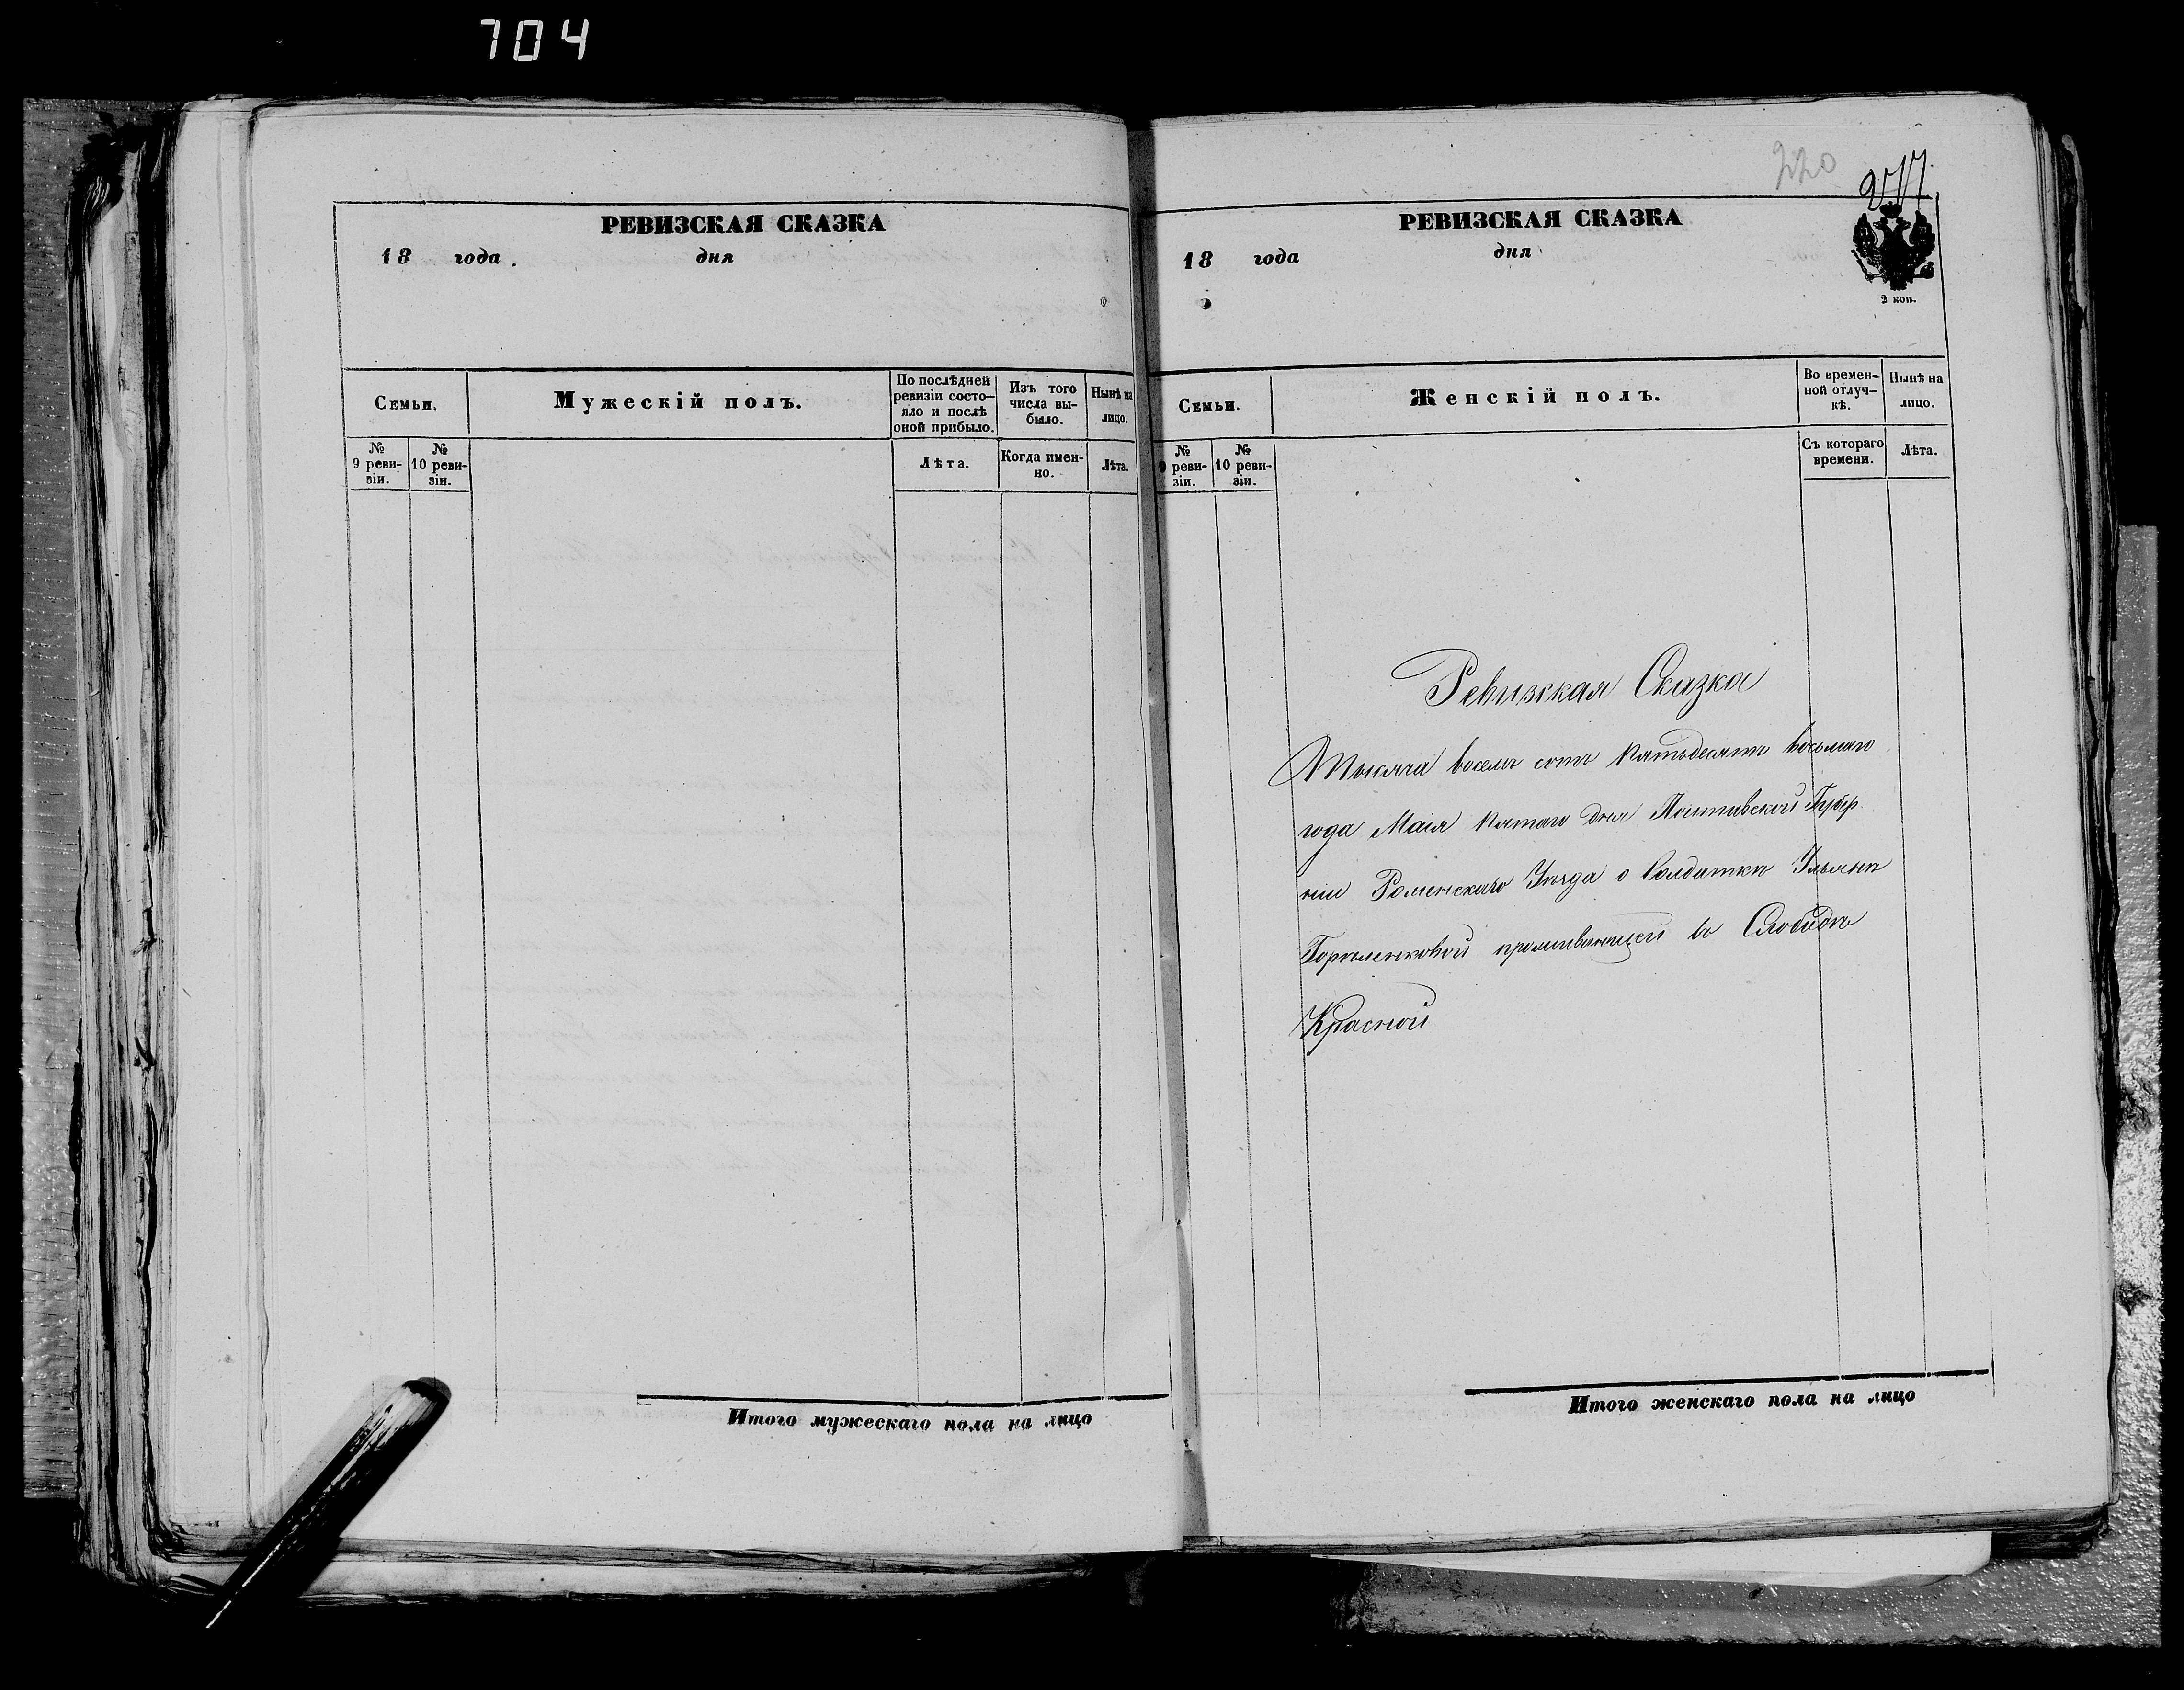 704
РЕВИЗСКАЯ СКАЗКА
18 года. дня
Семьи.
Мужескій полъ.
По послѣдней ревизіи состо-
яло и послѣ
оной прибыло.
Изъ того
числа вы-
было.
Нынѣ на
лицо.
№
9 реви-
зіи.
№
10 реви-
зіи.
Лѣта.
Когда имен-
но.
Лѣта.
Итого мужескаго пола на лицо
220
РЕВИЗСКАЯ СКАЗКА
18 года дня
2 коп.
Семьи.
Женскій полъ.
Во времен-
ной отлуч-
кѣ.
Нынѣ на
лицо.
№
9 реви-
зіи.
№
10 реви-
зіи.
Съ котораго
времени.
Лѣта.
Ревизская Сказка
Тысяча восемь сотъ пятьдесятъ восьмаго
года Маія пятаго дня Полтавской Губер
ніи Роменскаго Уѣзда о Солдаткѣ Ульянѣ
проживающей въ Слободѣ
Красной
Итого женскаго пола на лицо